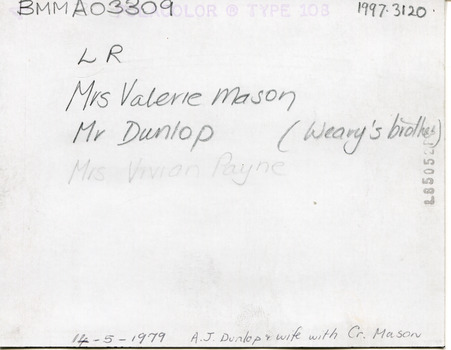 BMMA03309
COLOR ® TYPE 108
1997.3120.
L R
Mrs Valerie Mason
Mr Dunlop (Weary's brother)
Mrs Vivian Payne
14-5-1979 A.J. Dunlop & wife with Cr. Mason